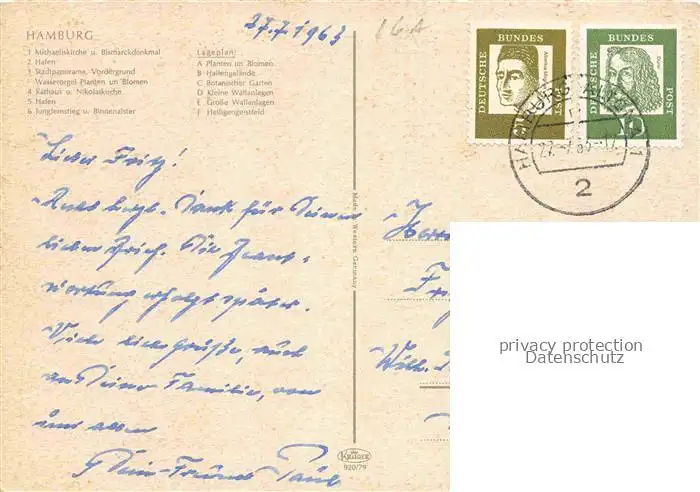 HAMBURG
1 Michaeliskirche u. Bismarckdenkmal
2 Hafen
3 Stadtpanorama, Vordergrund
Wasserorgel Planten un Blomen
4 Rathaus u. Nikolaikirche
5 Hafen
6 Jungfernstieg u. Binnenalster
Lageplan:
A Planten un Blomen
B Hallengelände
C Botanischer Garten
D Kleine Wallanlagen
E Große Wallanlagen
F Heiligengeistfeld
27.7.1963
16A
DEUTSCHE BUNDES POST
DEUTSCHE BUNDES POST
HAMBURG ALTONA 1
2
Lieber Fritz!
Dank für Deinen
lieben Brief. Die Beant-
wortung erfolgt später.
Viele liebe Grüße, auch
an Deine Familie, von
uns allen
Dein Freund Paul
Made in Western Germany
KRÜGER
920/79
Herrn
Wilh.
privacy protection
Datenschutz